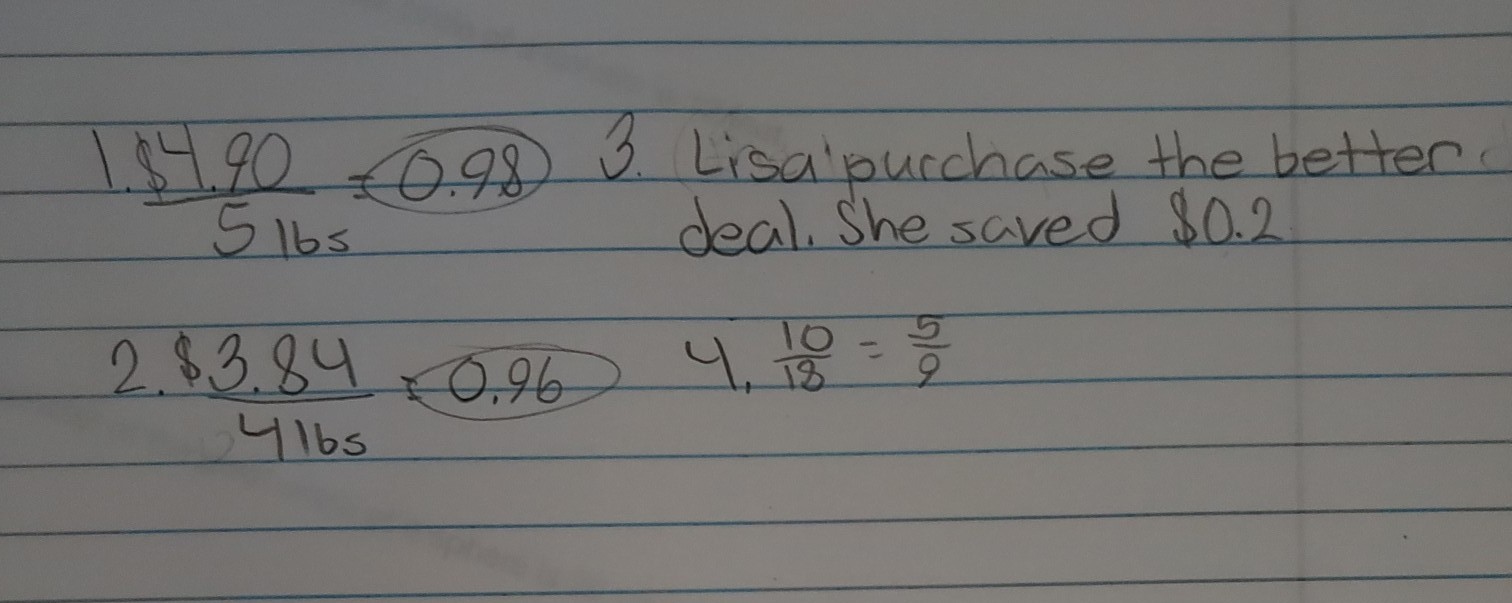 1. $4.90 / 5 lbs = 0.98
3. Lisa' purchase the better
deal. She saved $0.2
2. $3.84 / 4 lbs = 0.96
4. 10/18 = 5/9